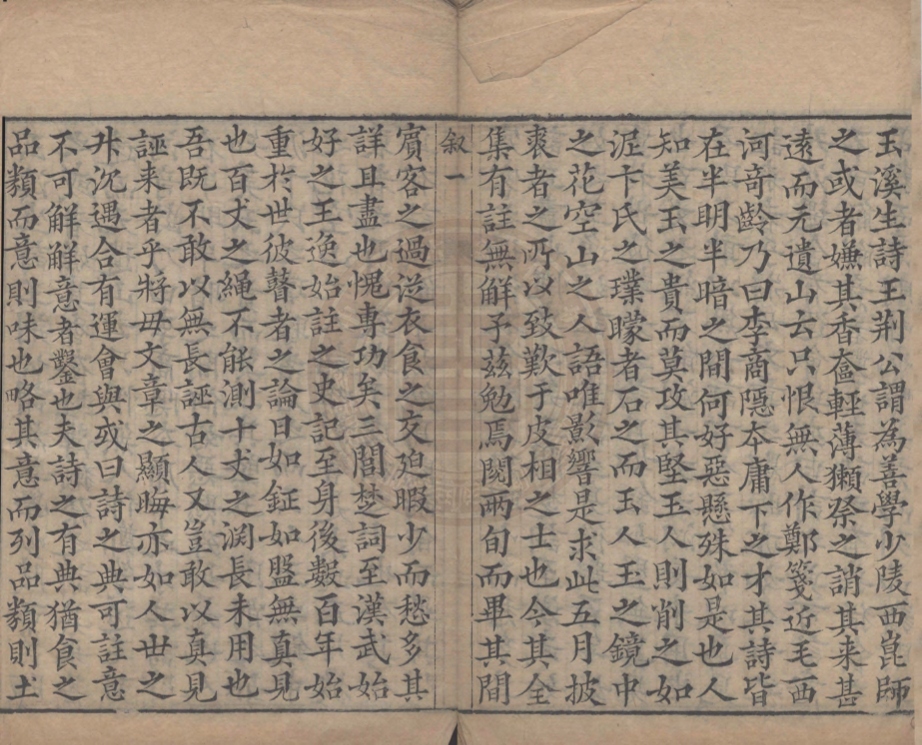 玉溪生詩王荆公謂為善學少陵西崑師
之或者嫌其香奩輕薄獺祭之誚其来甚
遠而元遺山云只恨無人作鄭箋近毛西
河竒齡乃曰李商隱夲庸下之才其詩皆
在半明半暗之間何好惡懸殊如是也人
知美玉之貴而莫攻其堅玉人則削之如
泥卞氏之璞矇者石之而玉人玉之鏡中
之花空山之人語唯影響是求此五月披
裘者之所以致歎于皮相之士也今其全
集有註無解予兹勉焉閱兩旬而畢其間
叙 一
賔客之過従衣食之交廹暇少而愁多其
詳且盡也愧専功矣三閭楚詞至漢武始
好之王逸始註之史記至身後數百年始
重於世彼瞽者之論日如鉦如盤無真見
也百丈之繩不能測十丈之渊長未用也
吾既不敢以無長誣古人又豈敢以真見
誣来者乎將毋文章之顯晦亦如人世之
升沉遇合有運會與或曰詩之典可註意
不可解解意者鑿也夫詩之有典猶食之
品類而意則味也略其意而列品類則土